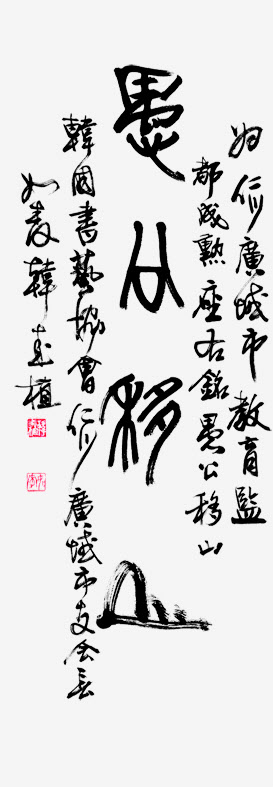 為仁川廣域市教育監
都成勳座右銘愚公移山
愚公移山
韓國書藝協會仁川廣域市支會長
如 韓 植